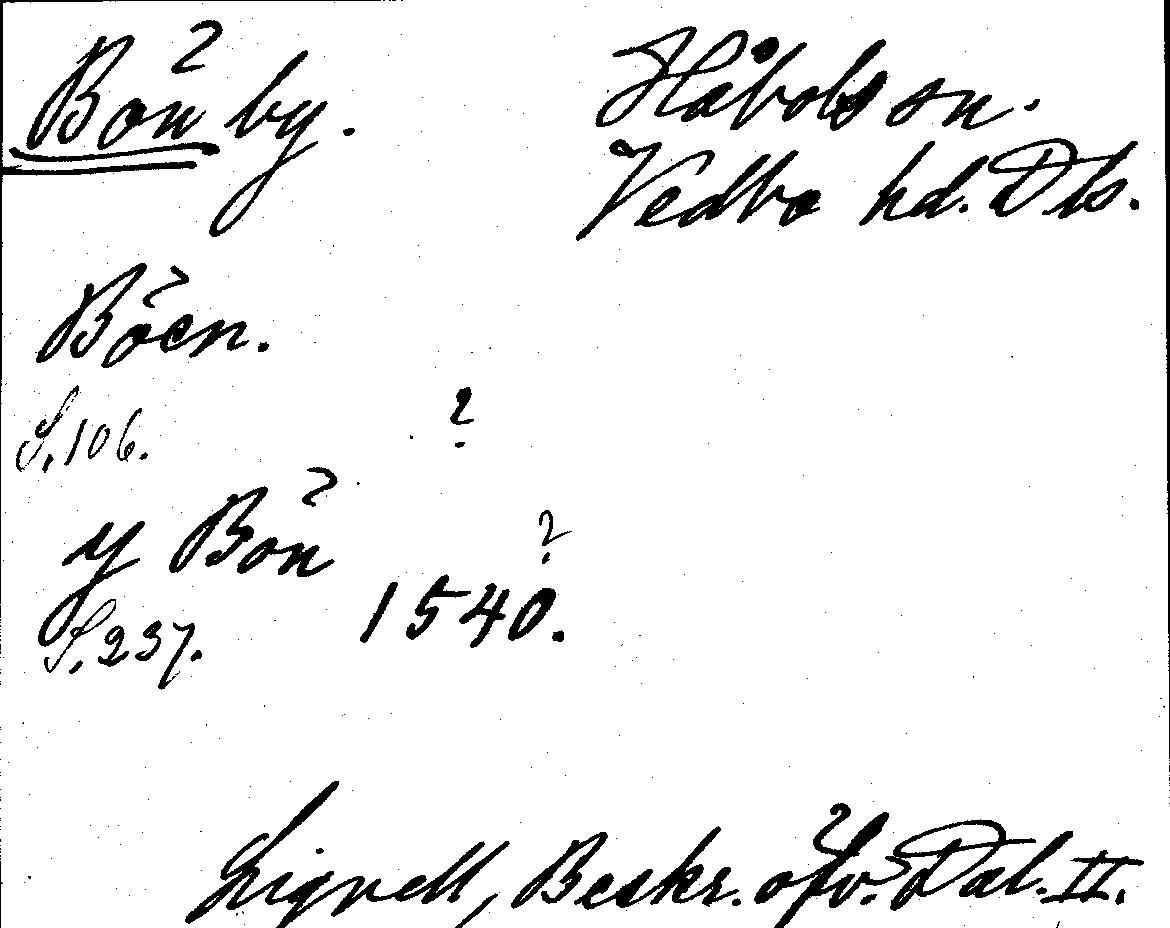 Bön by. Håbols sn.
Vedbo hd. Dls.
Böen.
S. 106. ?
y Bön ?
S. 237. 1540.
Lignell, Beskr. öfv. Dal. II.